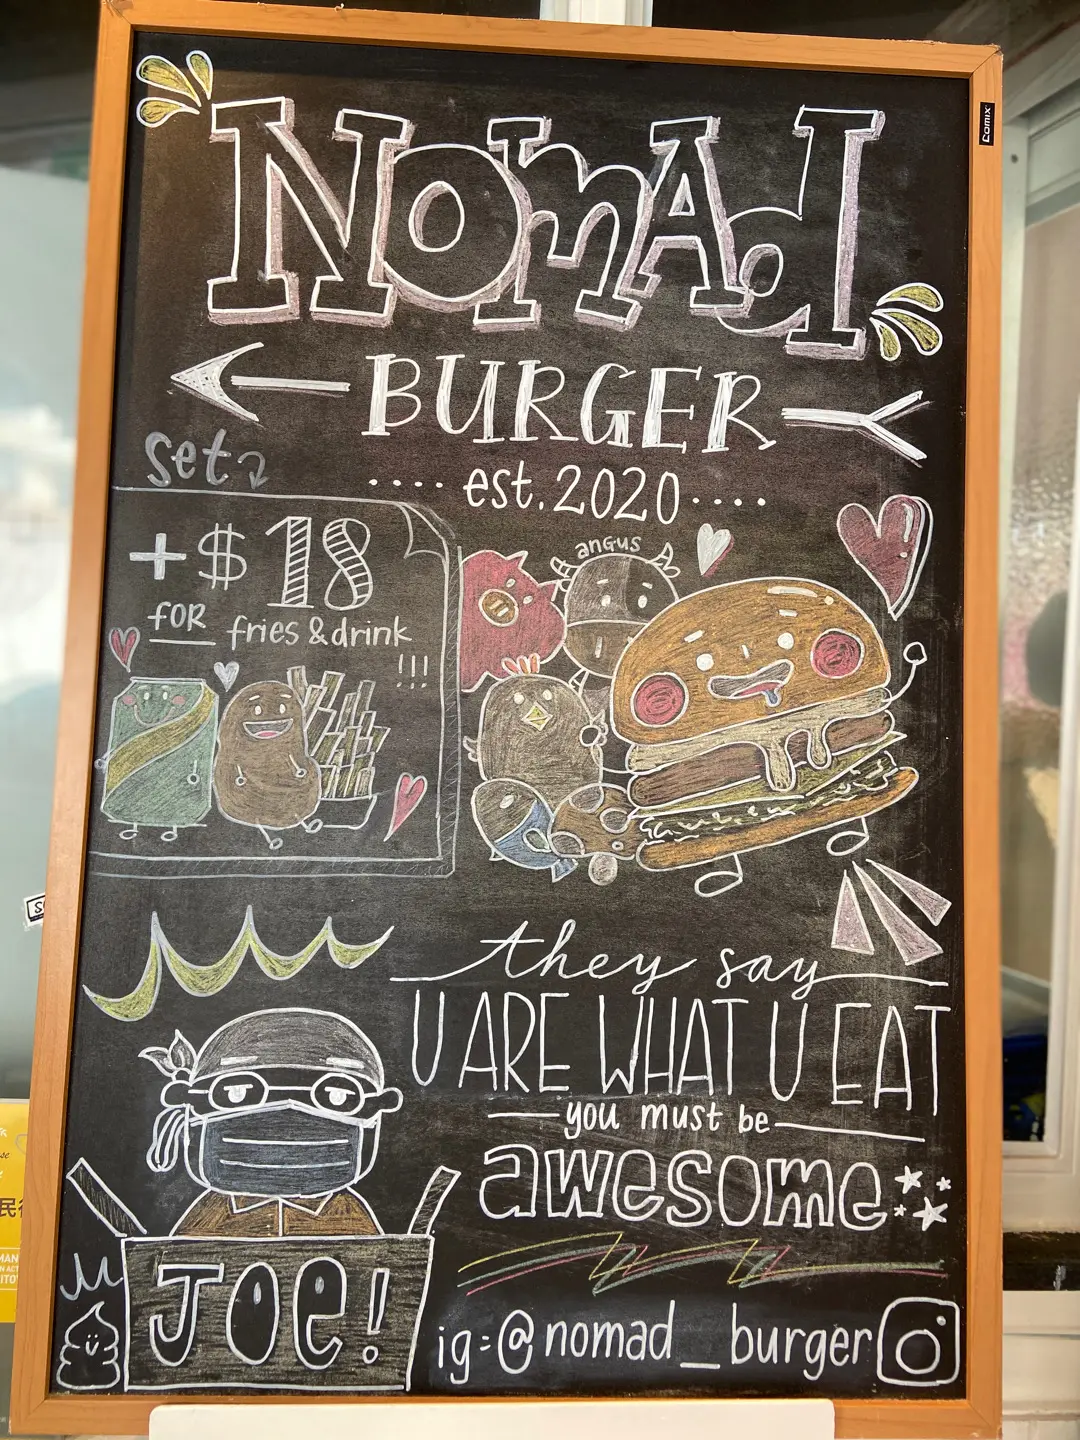 Comix
NomAd
BURGER
est.2020
set
+$18
for fries & drink
!!!
angus
they say
U ARE WHAT U EAT
you must be
awesome
JOe!
ig=@nomad_burger